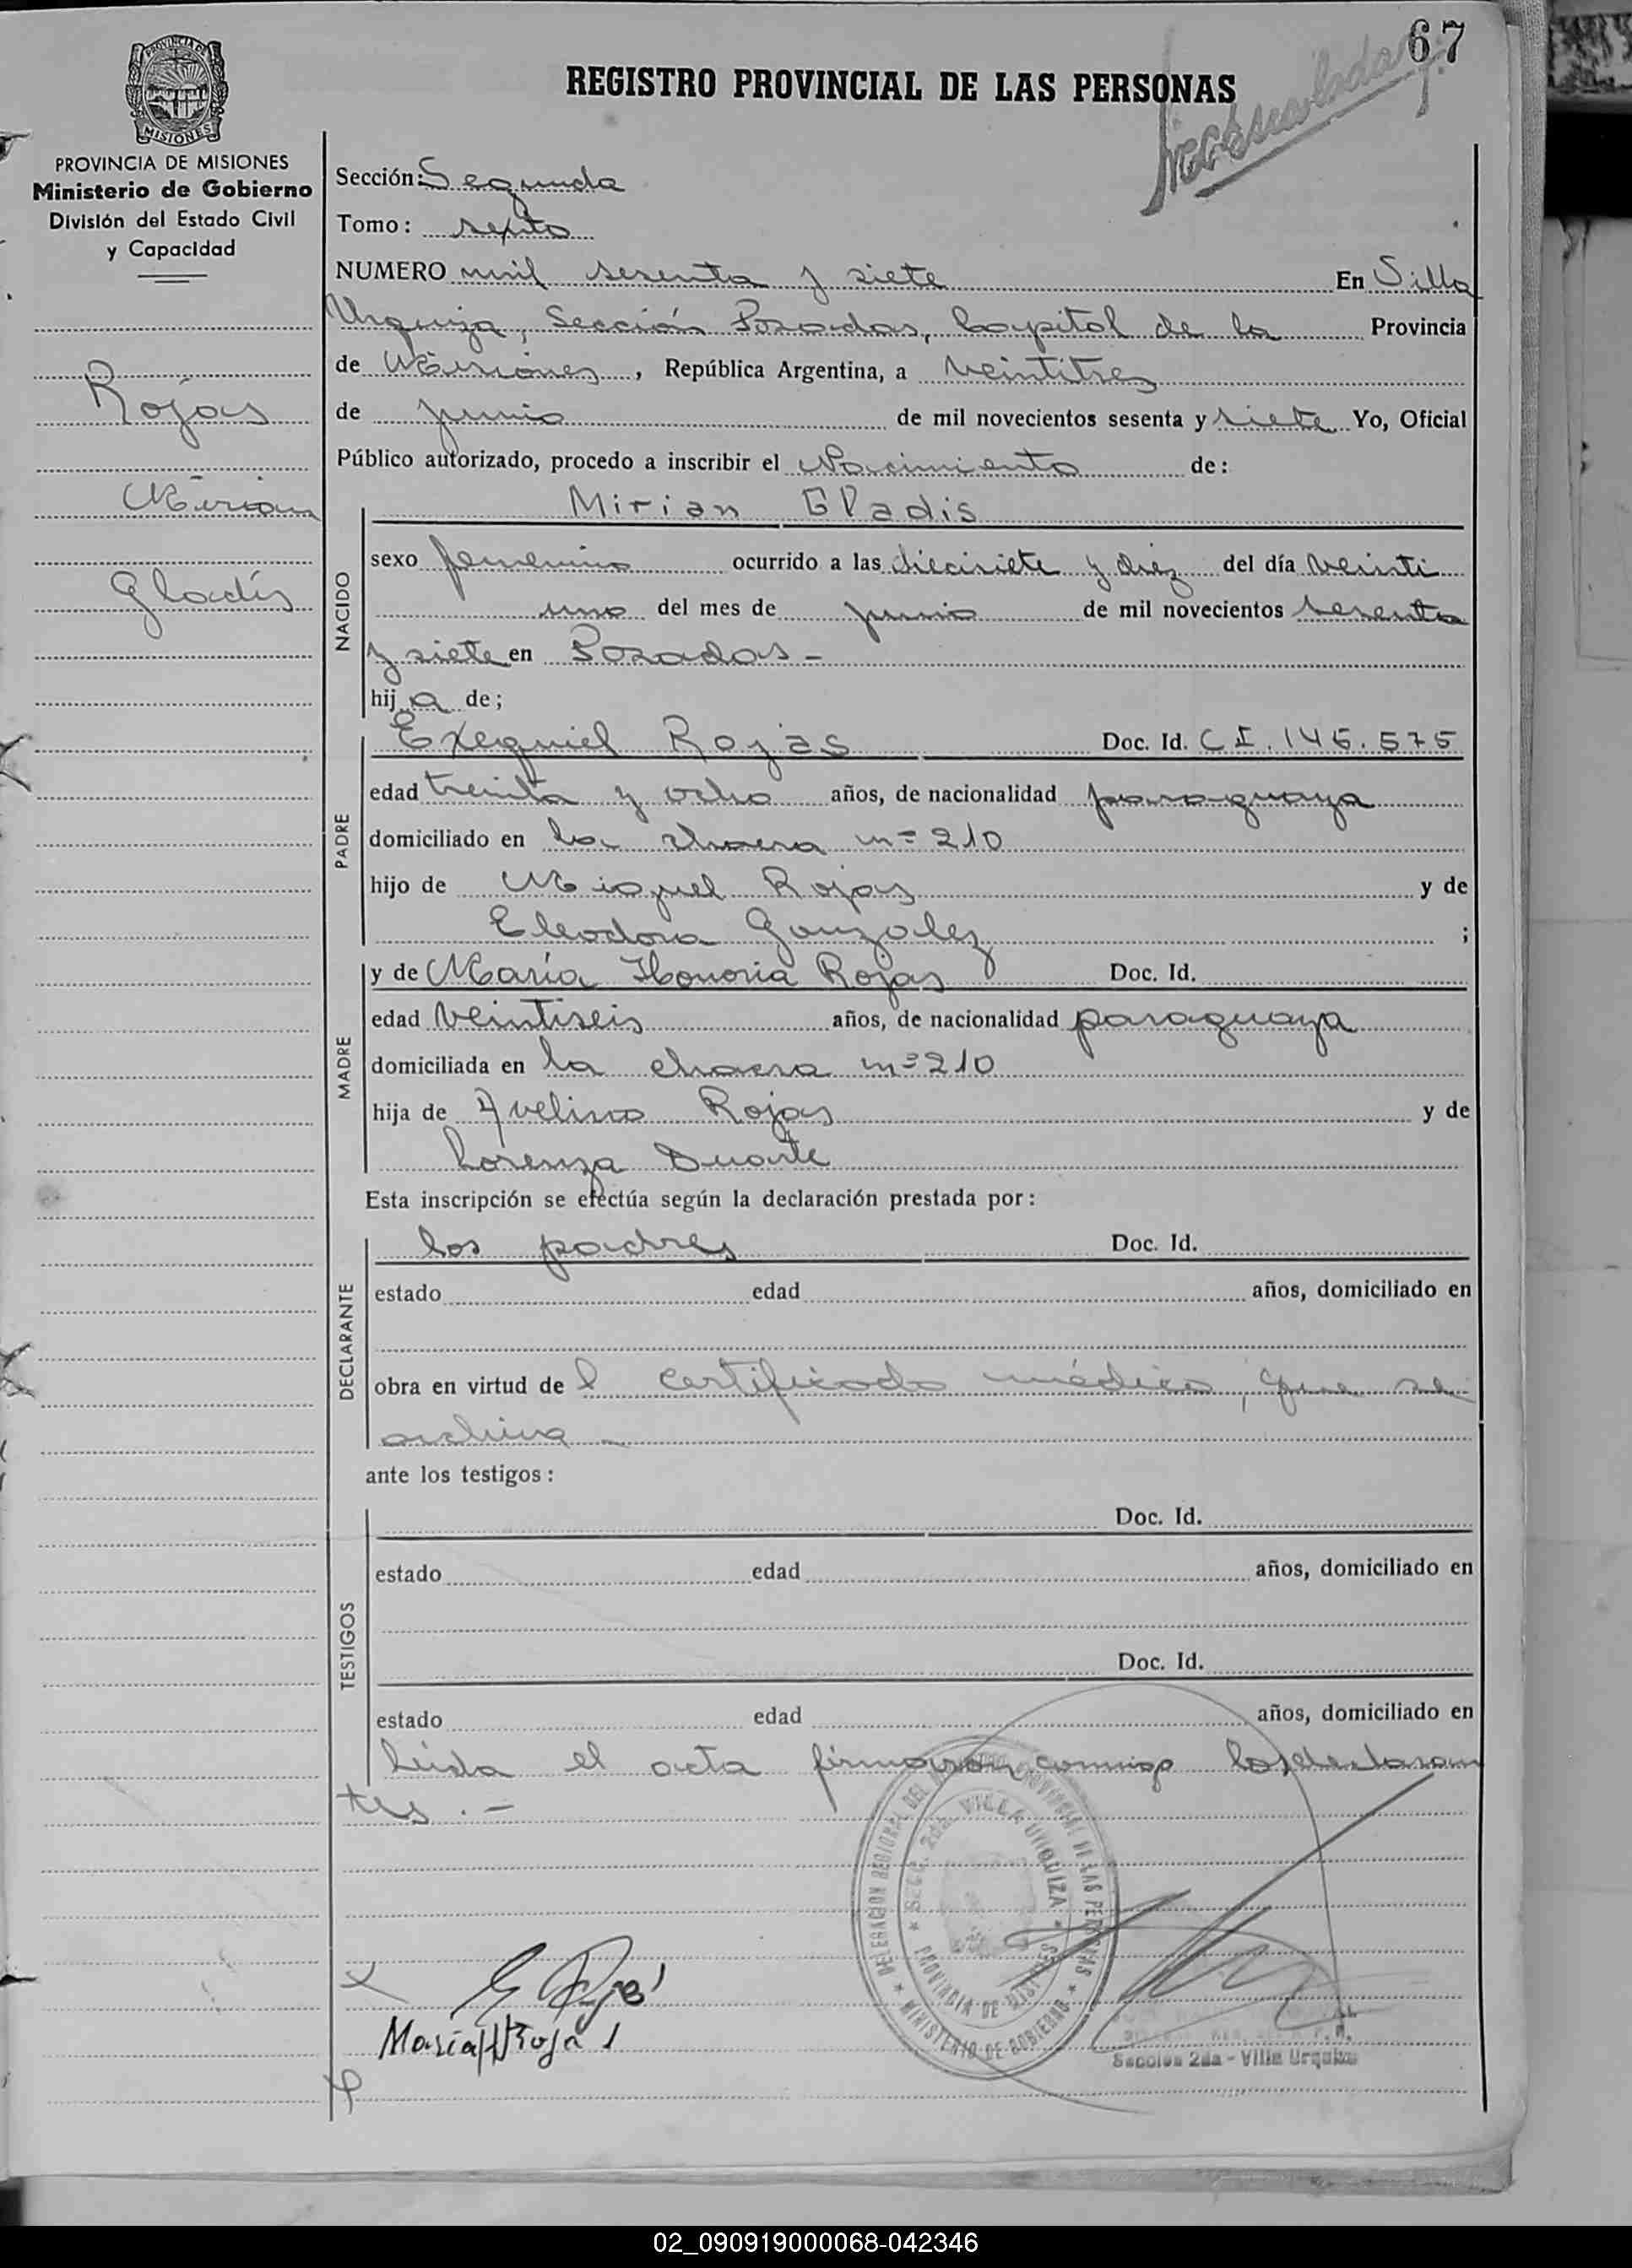 67
REGISTRO PROVINCIAL DE LAS PERSONAS
PROVINCIA DE MISIONES
MISIONES
PROVINCIA DE MISIONES
Ministerio de Gobierno
División del Estado Civil
y Capacidad
Rojas
Mirian
Gladis
Sección: Segunda
Tomo: sexto
NUMERO mil sesenta y siete En Villa
Urquiza, Sección Posadas, Capital de la Provincia
de Misiones, República Argentina, a veintitres
de junio de mil novecientos sesenta y siete Yo, Oficial
Público autorizado, procedo a inscribir el Nacimiento de:
NACIDO
Mirian Gladis
sexo femenino ocurrido a las diecisiete y diez del día veinti
uno del mes de junio de mil novecientos sesenta
y siete en Posadas -
hija de;
PADRE
Exequiel Rojas Doc. Id. C I. 146.575
edad treinta y ocho años, de nacionalidad paraguaya
domiciliado en la chacra nº 210
hijo de Miguel Rojas y de
Eleodora Gonzalez ;
MADRE
y de María Honoria Rojas Doc. Id.
edad veintiseis años, de nacionalidad paraguaya
domiciliada en la chacra nº 210
hija de Avelino Rojas y de
Lorenza Duarte
Esta inscripción se efectúa según la declaración prestada por:
DECLARANTE
los padres Doc. Id.
estado edad años, domiciliado en
obra en virtud del certificado médico, que se
archiva -
ante los testigos:
TESTIGOS
Doc. Id.
estado edad años, domiciliado en
Doc. Id.
estado edad años, domiciliado en
Leida el acta firmaron conmigo los declaran
tes. -
DELEGACION REGIONAL DEL REGISTRO PROVINCIAL DE LAS PERSONAS * MINISTERIO DE GOBIERNO *
* SECC. 2da. VILLA URQUIZA * PROVINCIA DE MISIONES
María H Roja
Sección 2da - Villa Urquiza
02_090919000068-042346